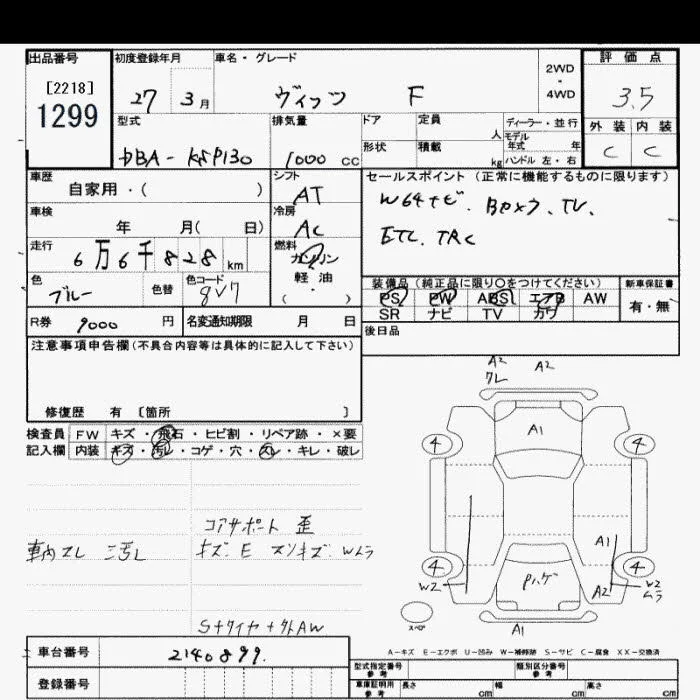 出品番号 初度登録年月 車名・グレード 評価点
[2218]
1299
27 3月 ヴィッツ F
2WD
・
4WD
3.5
型式 排気量 ドア 定員 人 ディーラー・並行
モデル
年式 年
外装 内装
DBA-KSP130 1000 cc 形状 積載 kg ハンドル 左・右 C C
車歴 シフト セールスポイント(正常に機能するものに限ります)
自家用・( ) AT
W64ナビ. Bカメラ. TV.
車検 冷房
年 月( 日) AC
ETC. TRC
走行 燃料
6万6千828km ガソリン
軽油
( )
色 色替 色コード
ブルー 8V7
装備品(純正品に限り○をつけてください) 新車保証書
PS PW ABS エアB AW 有・無
SR ナビ TV カワ
R券 9000 円 名変通知期限 月 日
後日品
注意事項申告欄(不具合内容等は具体的に記入して下さい)
修復歴 有 〔箇所 〕
検査員 FW キズ・飛石・ヒビ割・リペア跡・×要
記入欄 内装 キズ・汚レ・コゲ・穴・スレ・キレ・破レ
A2 A2
クレ
A1
4 4
コアサポート 歪
車内スレ 汚レ キズ.E スリキズ.Wムラ
A1
4 4
Pハゲ
W2 A2 W2
ムラ
スペア
A1
S+タイヤ+外AW
A-キズ E-エクボ U-凹み W-補修跡 S-サビ C-腐食 XX-交換済
車台番号 2140899.
登録番号
型式指定番号
参考
類別区分番号
参考
車庫証明用
参考
長さ cm 幅 cm 高さ cm